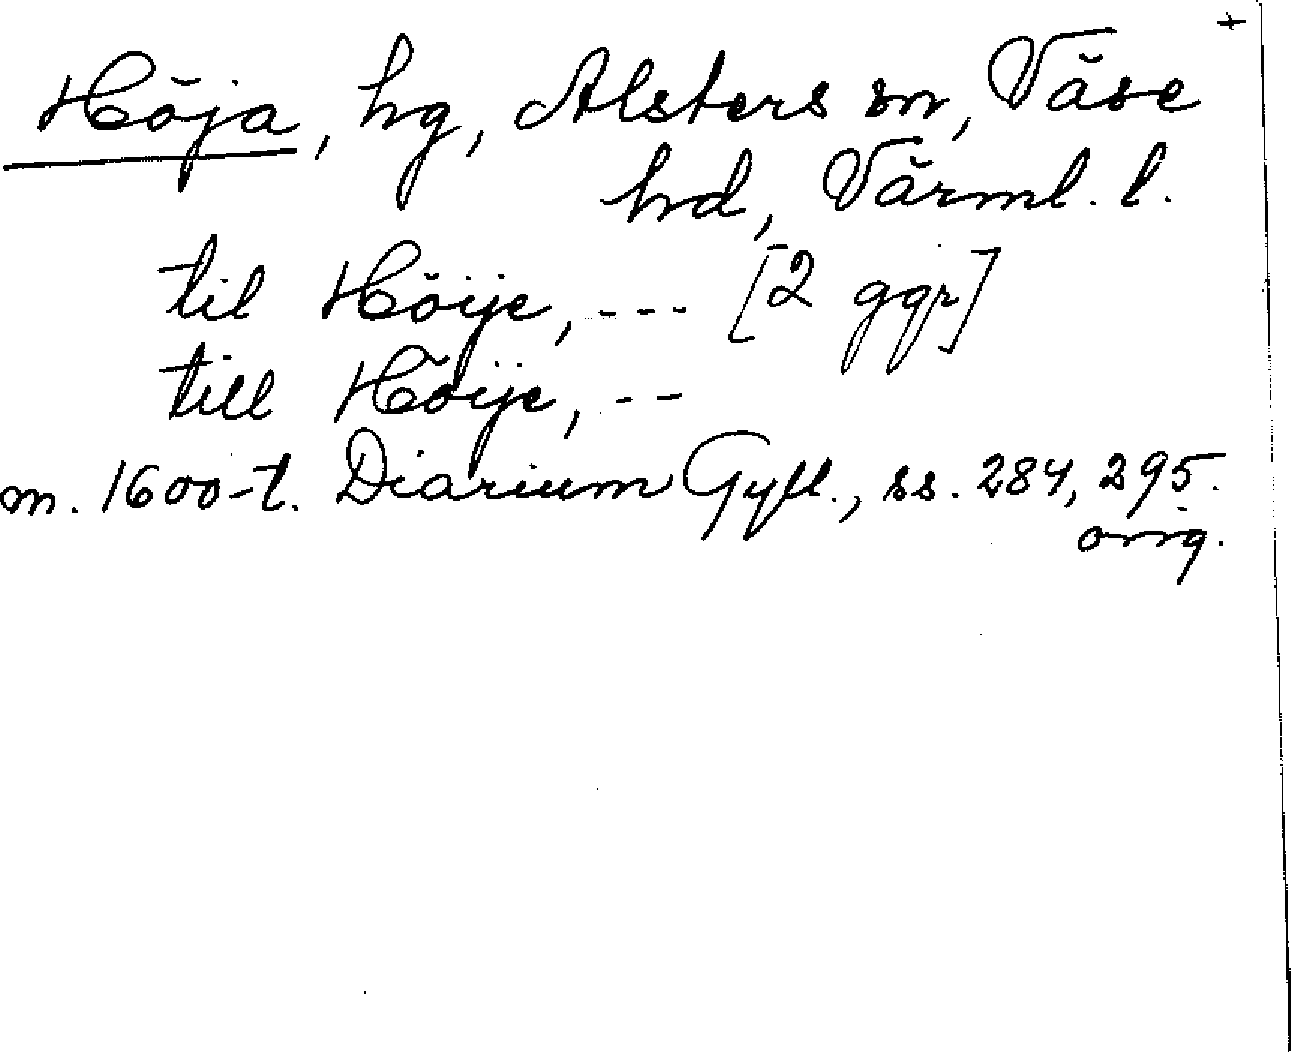 +
Höja, hg, Alsters sn, Väse
hd, Värml. l.
til Höije, --- [2 ggr]
till Höije, --
m. 1600-t. Diarium Gyll., ss. 284, 295.
orig.